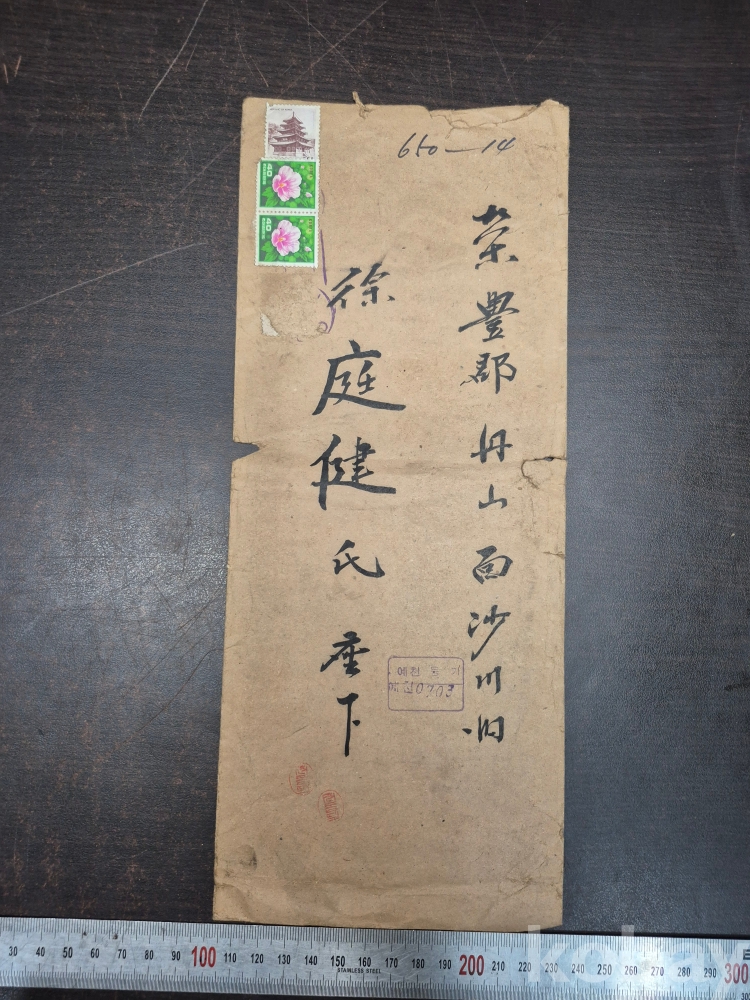 650-14
榮豊郡 丹山面 沙川 旧
徐庭健 氏 座下
40
40
예천 등기
0703
30 40 50 60 70 80 90 100 110 120 130 140 150 160 170 180 190 200 210 220 230 240 250 260 270 280 290 300
STAINLESS STEEL